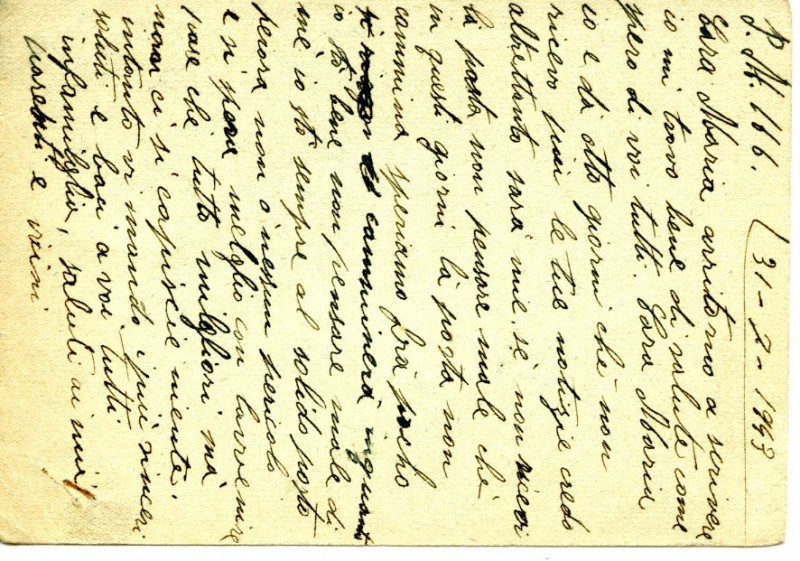 P. M. 116.
31-2-1943
Cara Maria arritorno a scrivere
io mi trovo bene di salute come
spero di voi tutti. Cara Maria
io e da otto giorni che non
ricevo piu le tue notizie credo
altrettanto sara mie, se non ricevi
la posta non pensare male che
in questi giorni la posta non
cammina speriamo frà pocho
camminera inquanto
io sto bene non pensare male di
me io sto sempre al solido posto
percora non o nessun pericolo
e si spera melglio con lavvenire
pare che tutto milgliori ma
non ci si capiscie niente.
intanto vi mando i piu sinceri
saluti e baci a voi tutti
infamilglia, saluti ai miei
parenti e vicini